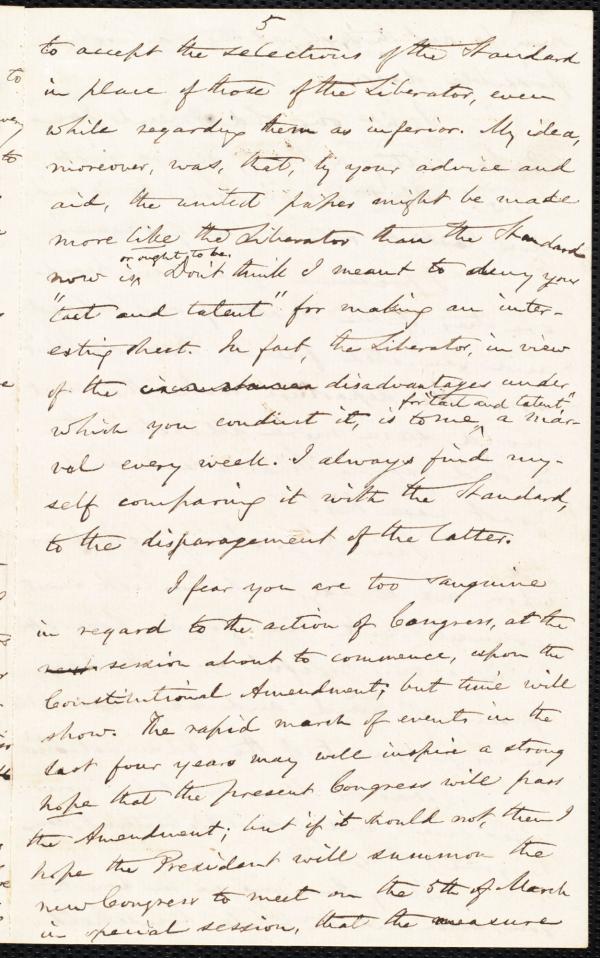 5
to accept the selections of the Standard
in place of those of the Liberator, even
while regarding them as inferior. My idea,
moreover, was, that, by your advice and
aid, the united paper might be made
more like the Liberator than the Standard
or ought to be.
now is. Don't think I meant to deny your
"tact and talent" for making an inter-
esting sheet. In fact, the Liberator, in view
of the circumstances disadvantages under
for "tact and talent"
which you conduct it, is to me, a mar-
vel every week. I always find my-
self comparing it with the Standard,
to the disparagement of the latter.
I fear you are too sanguine
in regard to the action of Congress, at the
next session about to commence, upon the
Constitutional Amendment; but time will
show. The rapid march of events in the
last four years may well inspire a strong
hope that the present Congress will pass
the Amendment; but if it should not, then I
hope the President will summon the
new Congress to meet on the 5th of March
in special session, that the measure